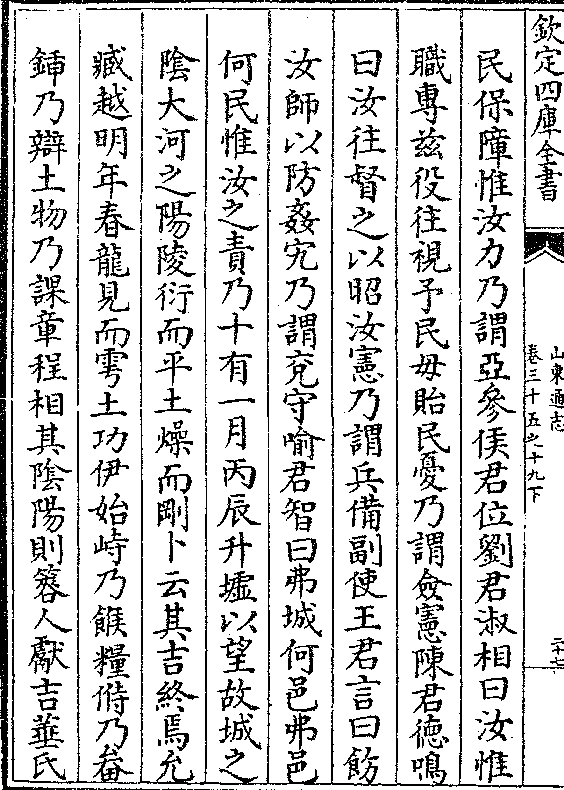 欽定四庫全書
山東通志
卷三十五之十九下
二十七
民保障惟汝力乃謂亞參侯君位劉君淑相曰汝惟
職專兹役往視予民毋貽民憂乃謂僉憲陳君德鳴
曰汝往督之以昭汝憲乃謂兵備副使王君言曰飭
汝師以防姦宄乃謂兖守喻君智曰弗城何邑弗邑
何民惟汝之責乃十有一月丙辰升墟以望故城之
陰大河之陽陵衍而平土燥而剛卜云其吉終焉允
臧越明年春龍見而雩土功伊始峙乃餱糧偫乃畚
鍤乃辯土物乃課章程相其陰陽則簭人獻吉華氏